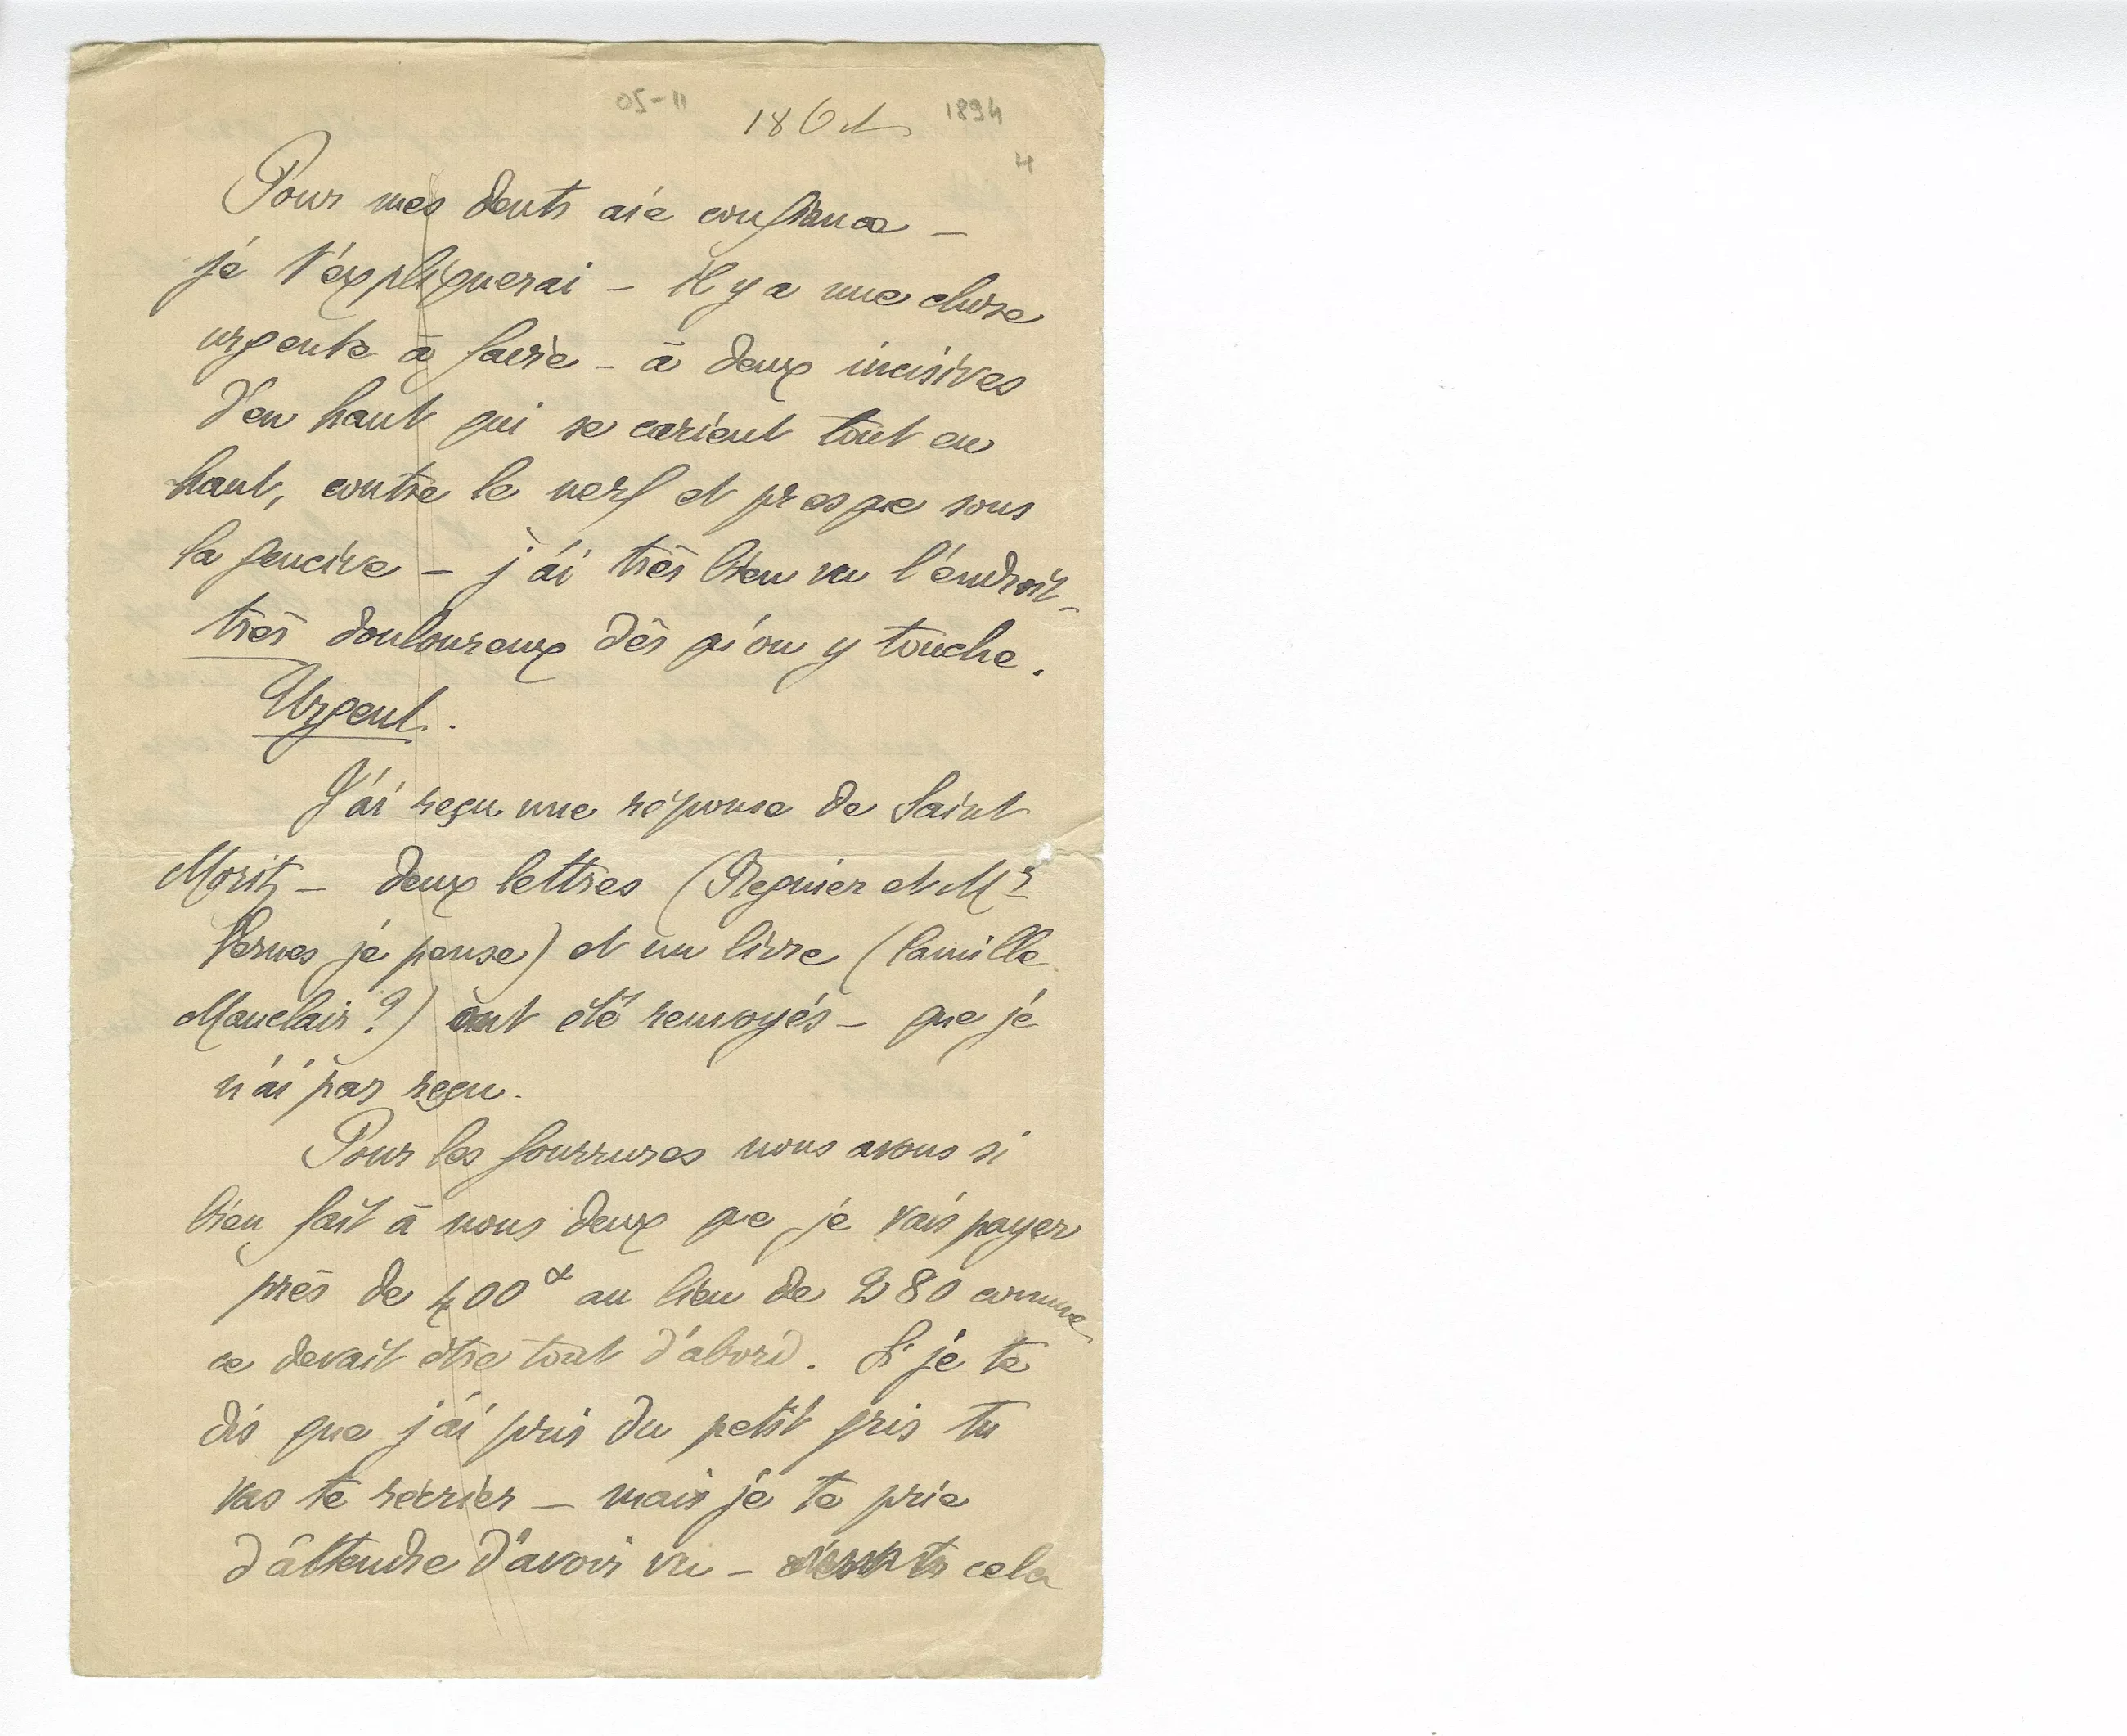 05-11
18 Oct
1894
4
Pour mes dents aie confiance –
je t'expliquerai – il y a une chose
urgente à faire – à deux incisives
d'en haut qui se carient tout en
haut, contre le nerf et presque sous
la gencive – j'ai très bien vu l'endroit –
très douloureux dès qu'on y touche.
Urgent.
J'ai reçu une réponse de Saint
Moritz – deux lettres (Regnier et Mr
Vernes je pense) et un livre (Camille
Mauclair?) ont été renvoyés – que je
n'ai pas reçu.
Pour les fourrures nous avons si
bien fait à nous deux que je vais payer
près de 400 au lieu de 280 comme
ce devait être tout d'abord. Si je te
dis que j'ai pris du petit gris tu
vas te récrier – mais je te prie
d'attendre d'avoir vu – cela